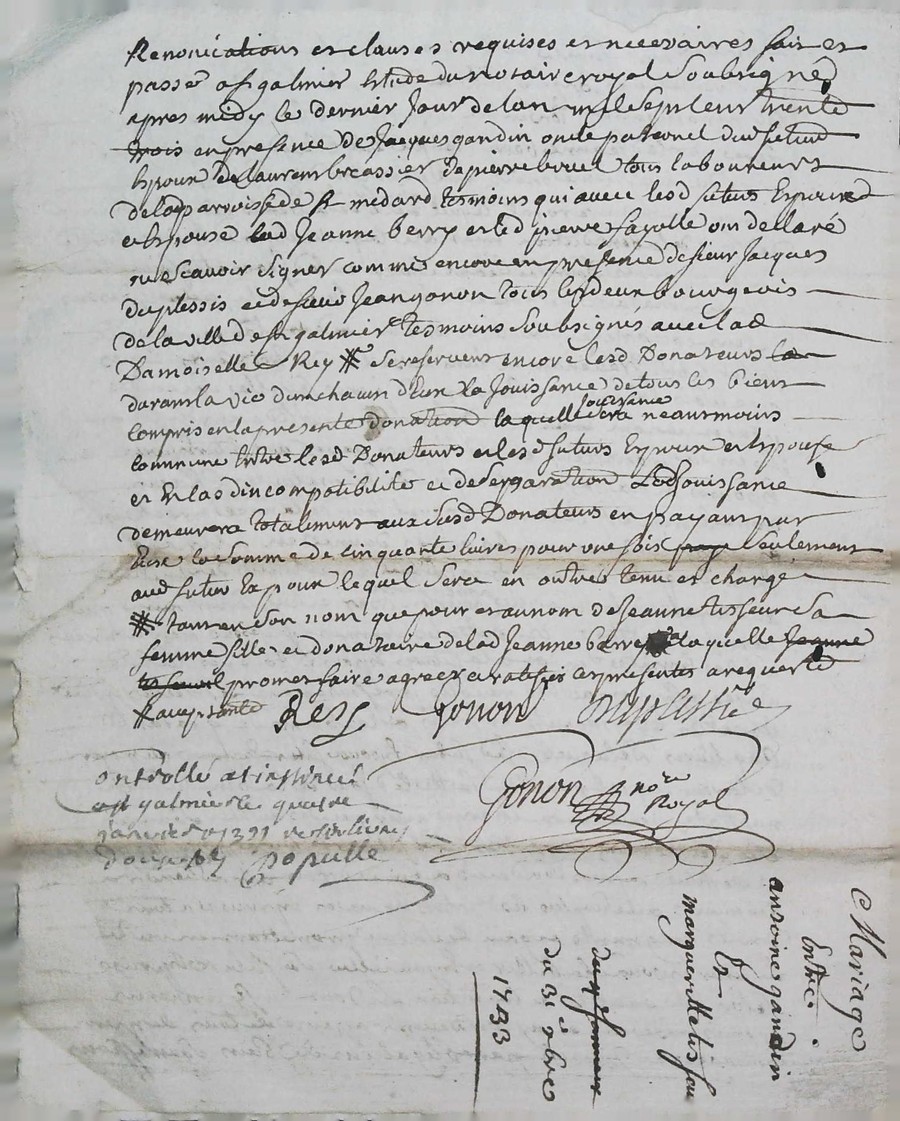 Renonciations et clauses requises et necessaires fait et
passé a st galmier Estude du notaire royal Soubsigné
apres midy le dernier Jour de lan mil sept cent trente
trois en presence de Jacques gandin oncle paternel dud futur
Epoux de laurent brassier de pierre bruel tous laboureurs
de la parroisse de st medard tesmoins qui avec lesd futurs Epoux
et Epouse lad Jeanne berry et led pierre fayolle ont dellaré
ne scavoir signer comme encore en presence de sieur Jacques
duplessis et de sieur Jean gonon tous les deux bourgeois
de la ville de st galmier tesmoins Soubsignés avec lad
Damoiselle Rey # se reservent encore lesd Donateurs la
durant la vie dun chacun d'Eux la Jouissance de tous les biens
compris en la presente donation laquelle Jouissance sera neantmoins
commune Entre lesd Donateurs et lesd futurs Epoux et Epouse
et En cas dincompatibilité et de separation lad Jouissance
demeurera totalement aux susd Donateurs en payant par
Eux la somme de cinquante livres pour une fois seulement
aud futur Epoux lequel sera en outre tenu et chargé
# tant en son nom que pour et au nom de Jeanne tisseur sa
femme fille et donataire de lad Jeanne berry laquelle Jeanne
promet faire agreer et ratifier ces presentes a requerte
# acceptante
Rey Gonon Duplessis
Gonon nore Royal
Controllé et insinué
a st galmier le quatre
janvier 1734 recu livres
douze populle
Mariage
Entre
antoine gandin
Et
marguerite tisseu
du 31e xbre
1733